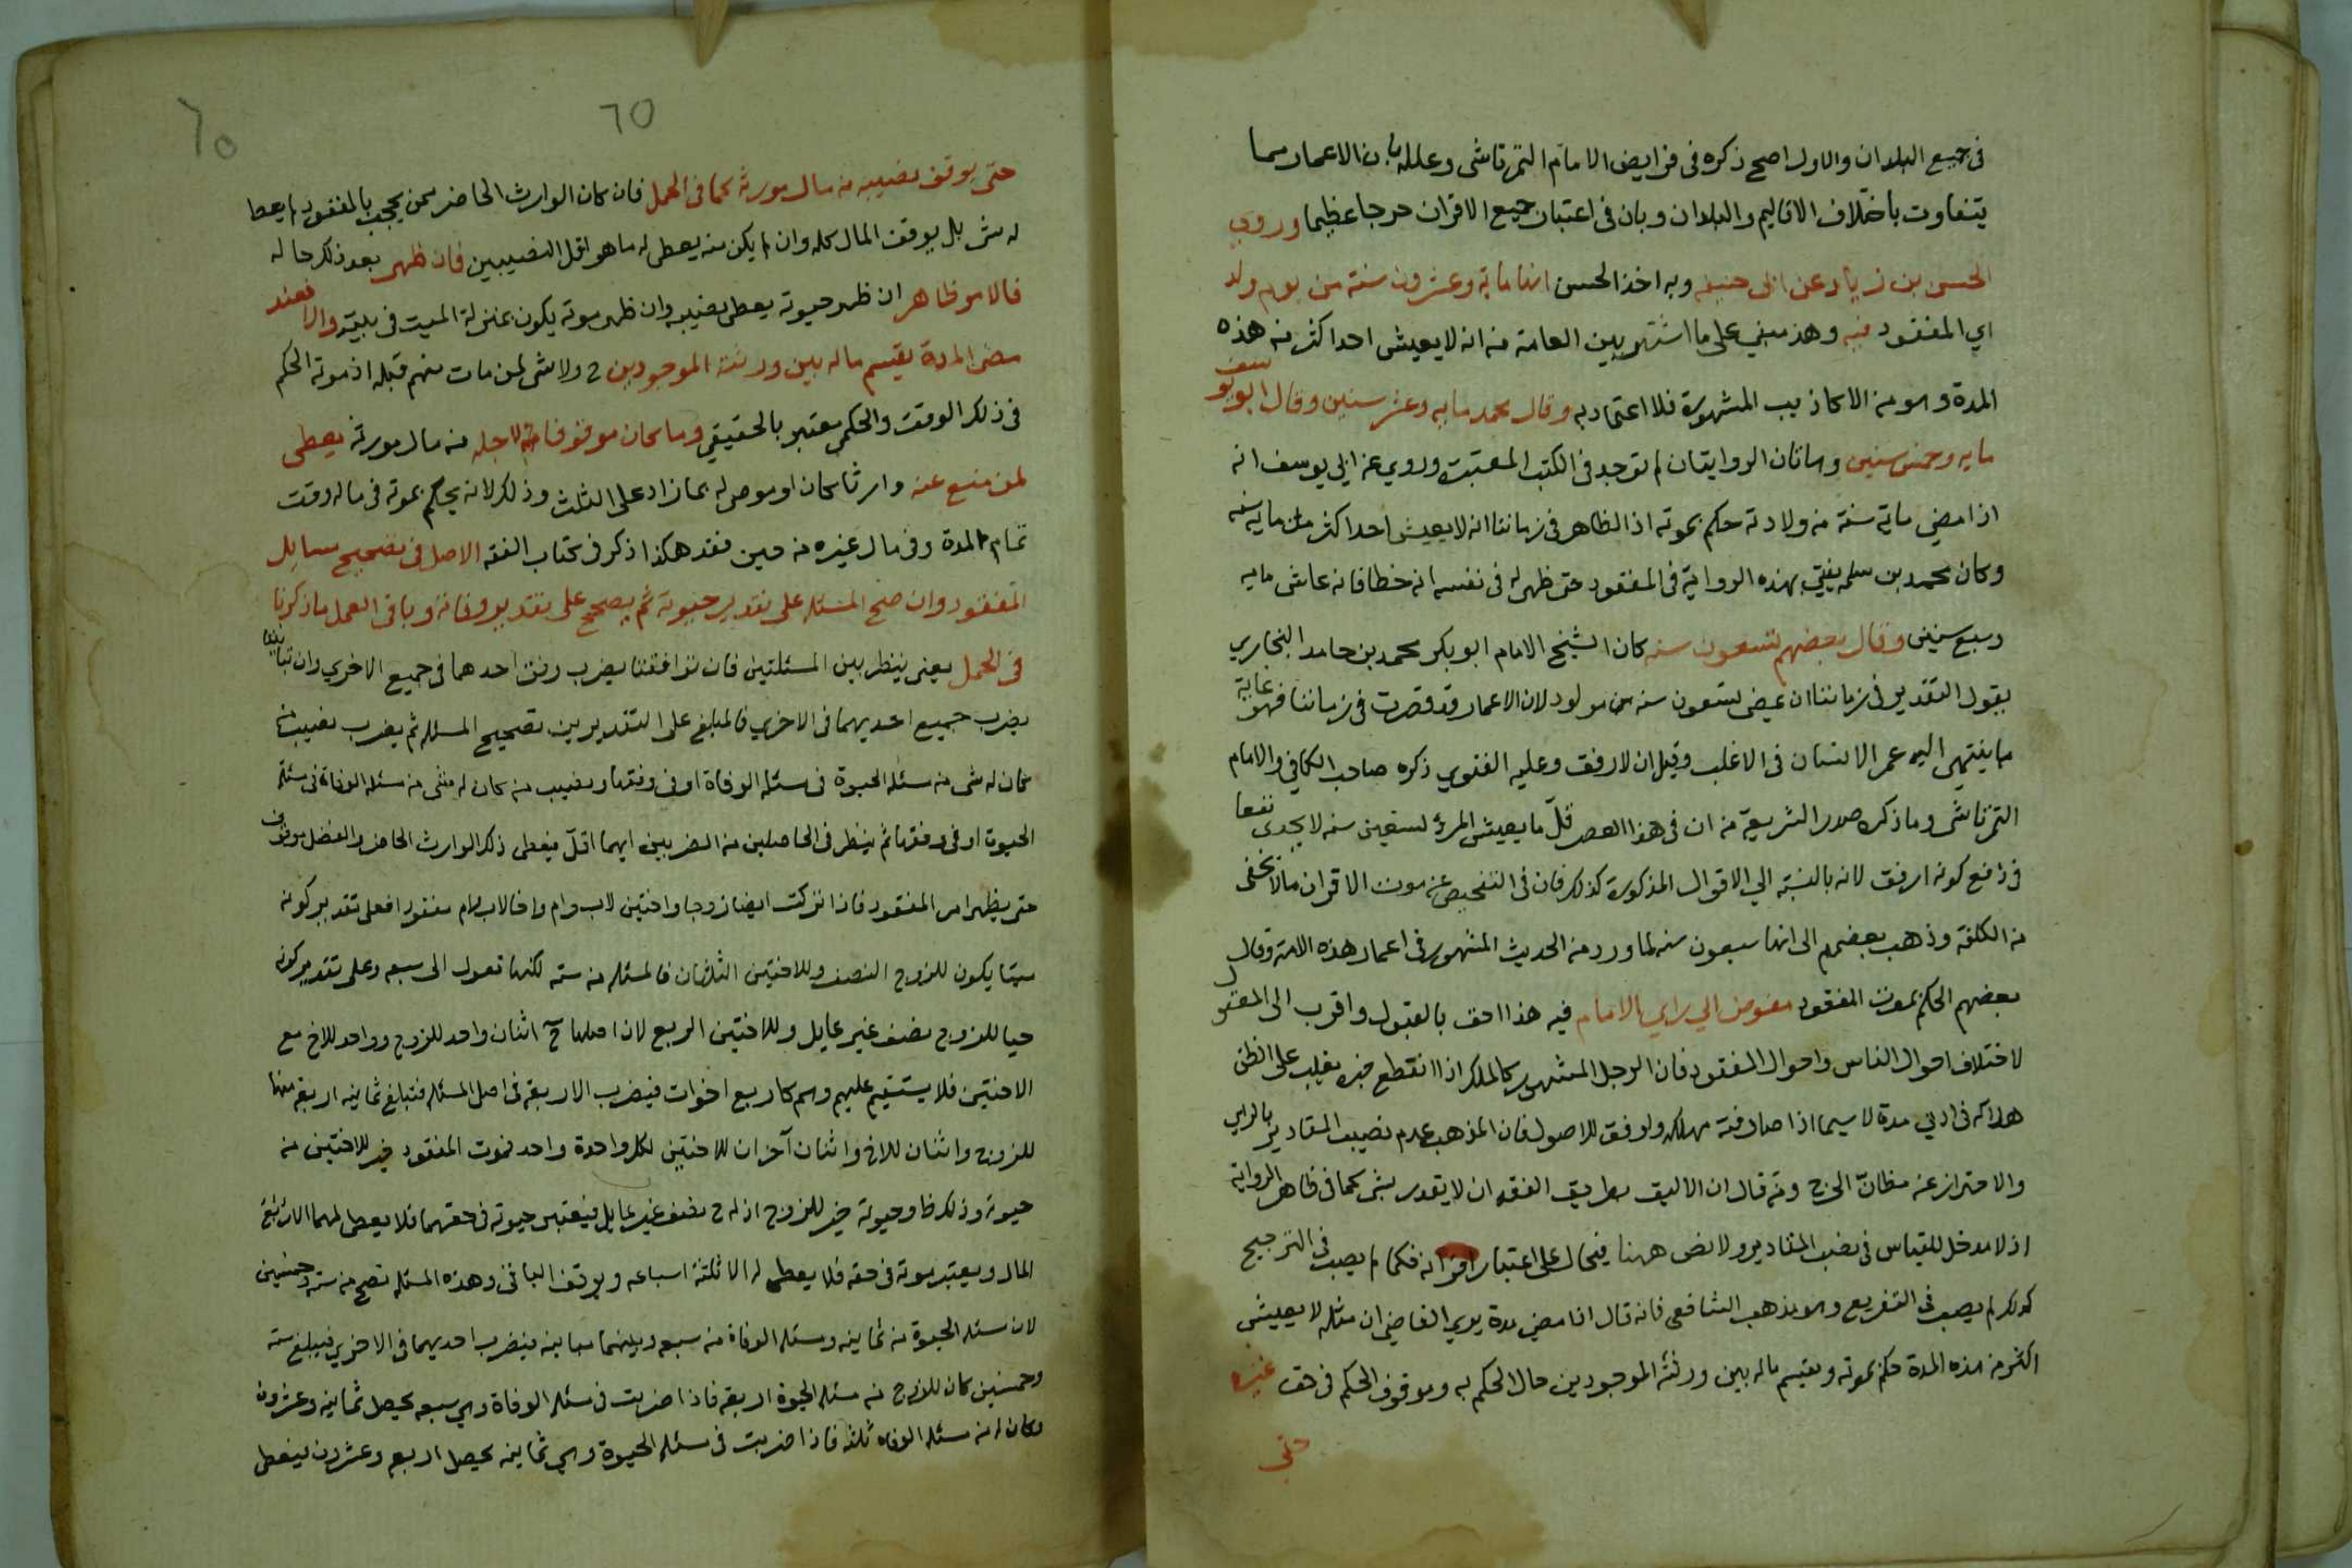 في جميع البلدان والاول اصح ذكره في فرايض الامام التمرتاشي وعلله بان الاعمار مما
يتفاوت باختلاف الاقاليم والبلدان وبان في اعتبار جميع الاقران حرجا عظيما وروي
الحسن بن زياد عن ابي حنيفه وبه اخذ الحسن انها ماية وعشرون سنة من يوم ولد
اي المفقود فيه وهذ مبني على ما اشتهر بين العامة من انه لا يعيش احد اكثر من هذه
المدة وهو من الاكاذيب المشهورة فلا اعتماد به وقال محمد مايه وعشر سنين وقال ابو يوسف
مايه وخمس سنين وهاتان الروايتان لم توجد في الكتب المعتبرة وروي عن ابي يوسف انه
اذا مضي ماية سنة من ولادته حكم بموته اذ الظاهر في زماننا انه لا يعيش احد اكثر من ماية سنه
وكان محمد بن سلمه يفتي بهذه الرواية في المفقود حتى ظهر له في نفسه انه خطا فانه عاش مايه
وسبع سنين وقال بعضهم تسعون سنه كان الشيخ الامام ابو بكر محمد بن حامد البخاري
يقول التقدير في زماننا ان يمضي تسعون سنه من مولود لان الاعمار قد قصرت في زماننا فهو غاية
ما ينتهي اليه عمر الانسان في الاغلب وقيل ان لارفق وعليه الفتوي ذكره صاحب الكافي والامام
التمرتاشي وما ذكره صدر الشريعة من ان في هذا العصر قلّ ما يعيش المرؤ تسعين سنه لا يجدى نفعا
في دفع كونه ارفق لانه بالنسبة الي الاقوال المذكورة كذلك فان في التفحيص عن موت الاقران ما لا يخفى
من الكلفة وذهب بعضهم الى انها سبعون سنه لما ورد من الحديث المشهور في اعمار هذه الامة وقال
بعضهم الحكم بموت المفقود مفوض الي راي الامام فيه هذا احق بالقبول واقرب الى المعقول
لاختلاف احوال الناس واحوال المفقود فان الرجل المشهور كالملك اذا انقطع خبره يغلب على الظن
هلاكه في ادني مدة لا سيما اذا صادفته مهلكه واوفق للاصول فان المذهب عدم نصيب المقادير بالراي
والاحتراز عن مظانّ الحرج ومن قال ان الاليق بطريق الفقه ان لا يقدر بشي كما في ظاهر الرواية
اذ لا مدخل للقياس في نصب المقادير ولا نص ههنا فيحال على اعتبار اقرانه فكما لم يصب في الترجيح
كذلك لم يصب في التفريع وهو مذهب الشافعي فانه قال اذا مضي مدة يري القاضي ان مثله لا يعيش
اكثر من هذه المدة حكم بموته ويقسم ماله بين ورثته الموجودين حال الحكم به وموقوف الحكم في حق غيره
حتى
٦٥
٦٥
حتى يوقف نصيبه من مال مورثه كما في الحمل فان كان الوارث الحاضر ممن يحجب بالمفقود لم يعط
له شي بل يوقف المال كله وان لم يكن منه يعطى له ما هو اقل النصيبين فان ظهر بعد ذلك حاله
فالامر ظاهر ان ظهر حيوته يعطى نصيبه وان ظهر موته يكون بمنزلة الميت في بلده والا فعند
مضى المدة يقسم ماله بين ورثته الموجودين ح ولا شي لمن مات منهم قبله اذ موته الحكم
في ذلك الوقت والحكمي معتبر بالحقيقي وما كان موقوفا لاجله من مال مورثه يعطى
لمن منع عنه وارثا كان او موصى له بما زاد على الثلث وذلك لانه يحكم بموته في ماله وقت
تمام المدة وفي مال غيره من حين فقد هكذا ذكر في كتاب الفقه الاصل في تصحيح مسايل
المفقود وان صح المسئله على تقدير حيوته ثم يصحح على تقدير وفاته وباقى العمل ما ذكرنا
في الحمل يعنى ينظر بين المسئلتين فان توافقتا يضرب وفق احدهما في جميع الاخري وان تباينتا
يضرب جميع احديهما في الاخري فالمبلغ على التقديرين تصحيح المسئله ثم يضرب نصيب من
كان له شي من مسئلة الحيوة في مسئله الوفاة او في وفقها ونصيب من كان له شى من مسئله الوفاة في مسئلة
الحيوة او في وفقها ثم ينظر في الحاصلين من الضربين ايهما اقلّ فيعطى ذلك الوارث الحاضر والفضل موقوف
حتى يظهر امر المفقود فاذا تركت ايضا زوجا واختين لاب وام واخا لاب وام مفقودا فعلى تقدير كونه
ميتا يكون للزوج النصف وللاختين الثلثان فالمسئله من سته لكنها تعول الى سبعه وعلى تقدير كونه
حيا للزوج نصف غير عايل وللاختين الربع لان اصلها ح اثنان واحد للزوج وواحد للاخ مع
الاختين فلا يستقيم عليهم وهم كاربع اخوات فيضرب الاربعة في اصل المسئله فتبلغ ثمانيه اربعة منها
للزوج واثنان للاخ واثنان آخران للاختين لكل واحدة واحد فموت المفقود خير للاختين من
حيوته وذلك ظ وحيوته خير للزوج اذ له ح نصف غير عايل فيعتبر حيوته في حقهما فلا يعطى لهما الا ربع
المال ويعتبر موته في حقه فلا يعطى له الا ثلثة اسباعه ويوقف الباقى وهذه المسئله تصح من ستة وخمسين
لان مسئله الحيوة من ثمانيه ومسئله الوفاة من سبعه وبينهما مباينه فيضرب احديهما في الاخري فيبلغ سته
وخمسين كان للزوج من مسئله الحيوة اربعة فاذا ضربت في مسئله الوفاة وهي سبعه يحصل ثمانيه وعشرون
وكان له من مسئله الوفاه ثلثه فاذا ضربت في مسئله الحيوة وهي ثمانيه يحصل اربع وعشرون فيعطى